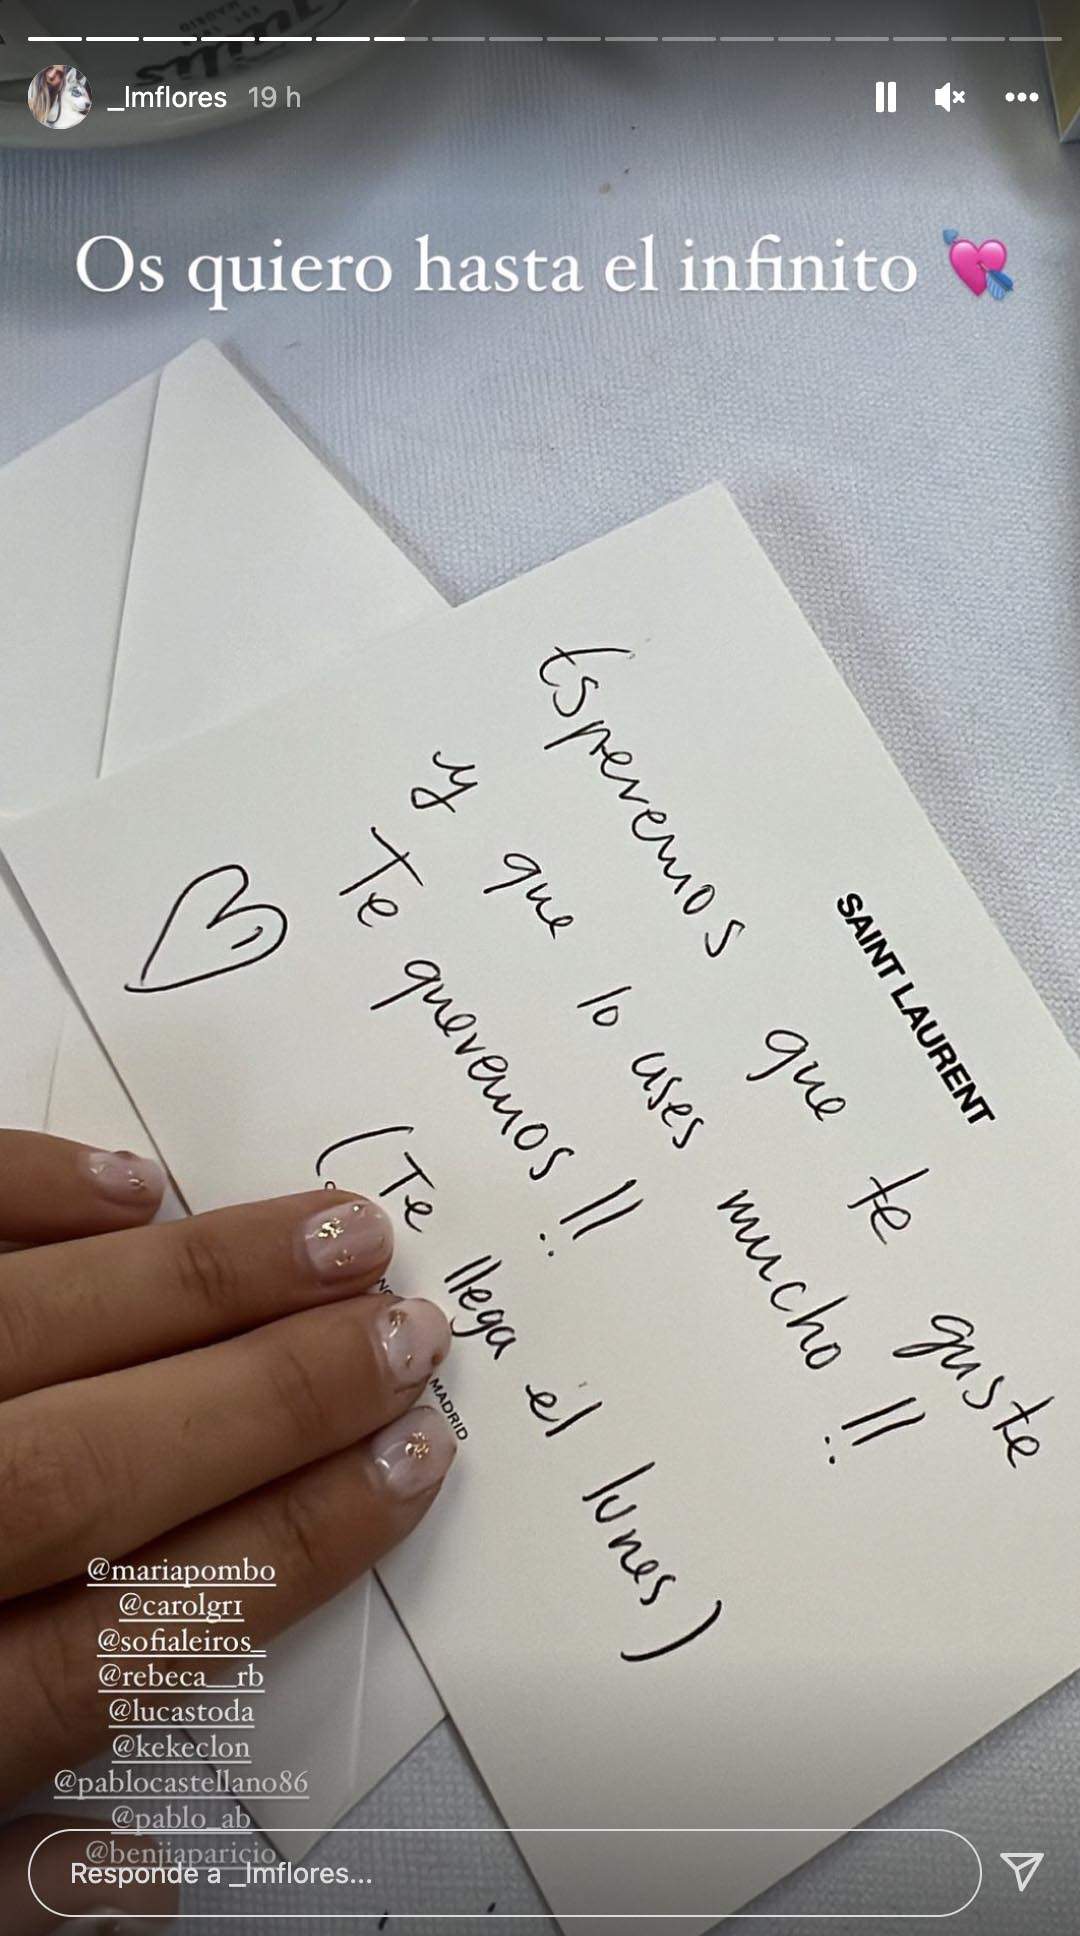 _lmflores 19 h
Os quiero hasta el infinito 💘
SAINT LAURENT
Esperemos que te guste
y que lo uses mucho!!
Te queremos!!
(Te llega el lunes)
MADRID
@mariapombo
@carolgr1
@sofialeiros_
@rebeca__rb
@lucastoda
@kekeclon
@pablocastellano86
@pablo_ab
@benjiaparicio
Responde a _lmflores...